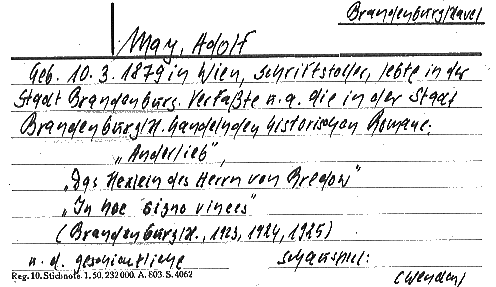 Brandenburg/Havel
May, Adolf
Geb. 10.3.1879 in Wien, Schriftsteller, lebte in der
Stadt Brandenburg. Verfaßte u.a. die in der Stadt
Brandenburg/H. handelnden historischen Romane:
„Anderlieb",
„Das Hexlein des Herrn von Bredow"
„In hoc signo vinces"
(Brandenburg/H., 1923, 1924, 1925)
u. d. geschichtliche Schauspiel:
Reg. 10. Stichnote. 1. 50. 232 000. A. 803. S. 4062
(Wenden)